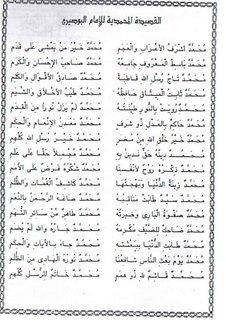 القصيدة المحمدية للإمام البوصيري
مُحَمَّدٌ أَشْرَفُ الأَعْرَابِ وَالْعَجَمِ مُحَمَّدٌ خَيْرُ مَنْ يَمْشِي عَلَى قَدَمِ
مُحَمَّدٌ بَاسِطُ الْمَعْرُوفِ جَامِعُهُ مُحَمَّدٌ صَاحِبُ الإِحْسَانِ وَالْكَرَمِ
مُحَمَّدٌ تَاجُ رُسْلِ اللهِ قَاطِبَةً مُحَمَّدٌ صَادِقُ الأَقْوَالِ وَالْكَلِمِ
مُحَمَّدٌ ثَابِتُ الْمِيثَاقِ حَافِظُهُ مُحَمَّدٌ طَيِّبُ الأَخْلَاقِ وَالشِّيَمِ
مُحَمَّدٌ رُوِيَتْ بِالنُّورِ طِينَتُهُ مُحَمَّدٌ لَمْ يَزَلْ نُورًا مِنَ الْقِدَمِ
مُحَمَّدٌ حَاكِمٌ بِالْعَدْلِ ذُو شَرَفٍ مُحَمَّدٌ مَعْدِنُ الإِنْعَامِ وَالْحِكَمِ
مُحَمَّدٌ خَيْرُ خَلْقِ اللهِ مِنْ مُضَرٍ مُحَمَّدٌ خَيْرُ رُسْلِ اللهِ كُلِّهِمِ
مُحَمَّدٌ دِينُهُ حَقٌّ نَدِينُ بِهِ مُحَمَّدٌ مُجْمِلًا حَقًّا عَلَى عَلَمِ
مُحَمَّدٌ ذِكْرُهُ رُوحٌ لِأَنْفُسِنَا مُحَمَّدٌ شُكْرُهُ فَرْضٌ عَلَى الأُمَمِ
مُحَمَّدٌ زِينَةُ الدُّنْيَا وَبَهْجَتُهَا مُحَمَّدٌ كَاشِفُ الْغُمَّاتِ وَالظُّلَمِ
مُحَمَّدٌ سَيِّدٌ طَابَتْ مَنَاقِبُهُ مُحَمَّدٌ صَاغَهُ الرَّحْمٰنُ بِالنِّعَمِ
مُحَمَّدٌ صَفْوَةُ الْبَارِي وَخِيرَتُهُ مُحَمَّدٌ طَاهِرٌ مِنْ سَائِرِ التُّهَمِ
مُحَمَّدٌ ضَاحِكٌ لِلضَّيْفِ مُكْرِمُهُ مُحَمَّدٌ جَارُهُ وَاللهِ لَمْ يُضَمِ
مُحَمَّدٌ طَابَتِ الدُّنْيَا بِبِعْثَتِهِ مُحَمَّدٌ جَاءَ بِالآيَاتِ وَالْحِكَمِ
مُحَمَّدٌ يَوْمَ بَعْثِ النَّاسِ شَافِعُنَا مُحَمَّدٌ نُورُهُ الْهَادِي مِنَ الظُّلَمِ
مُحَمَّدٌ قَائِمٌ لِلهِ ذُو هِمَمٍ مُحَمَّدٌ خَاتِمٌ لِلرُّسْلِ كُلِّهِمِ